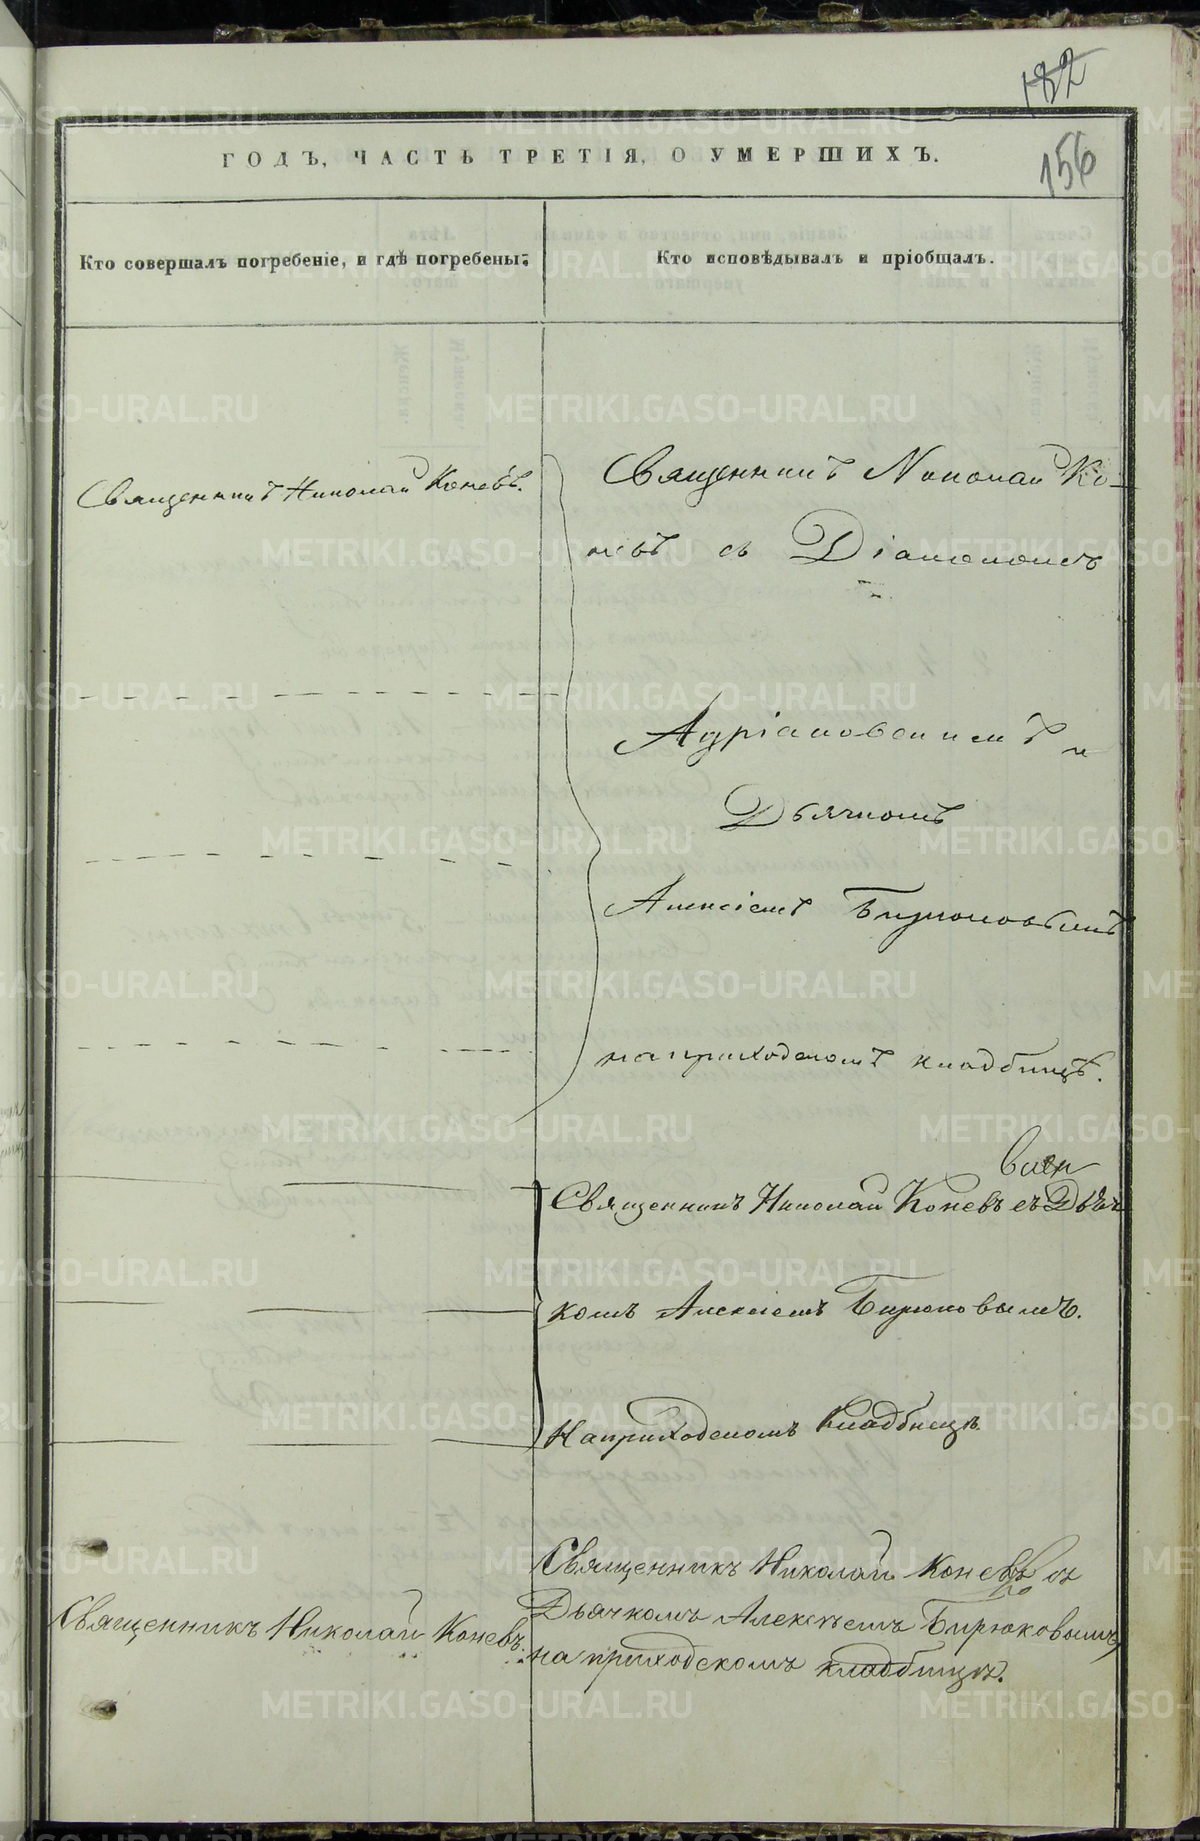 182
ГОДЪ, ЧАСТЬ ТРЕТІЯ, О УМЕРШИХЪ.
156
Кто совершалъ погребеніе, и гдѣ погребены:
Кто исповѣдывалъ и пріобщалъ.
Священникъ Николай Коневъ.
Священникъ Николай Ко-
невъ съ Діакономъ
Адріановскимъ и
Дьячкомъ
Алексіемъ Бирюковымъ
на приходскомъ кладбищѣ.
Священникъ Николай Коневъ съ Дьяч
комъ Алексіемъ Бирюковымъ.
На приходскомъ кладбищѣ.
Священникъ Николай Коневъ.
Священникъ Николай Коневъ съ
Дьячкомъ Алексѣемъ Бирюковымъ,
на приходскомъ кладбищѣ.
METRIKI.GASO-URAL.RU